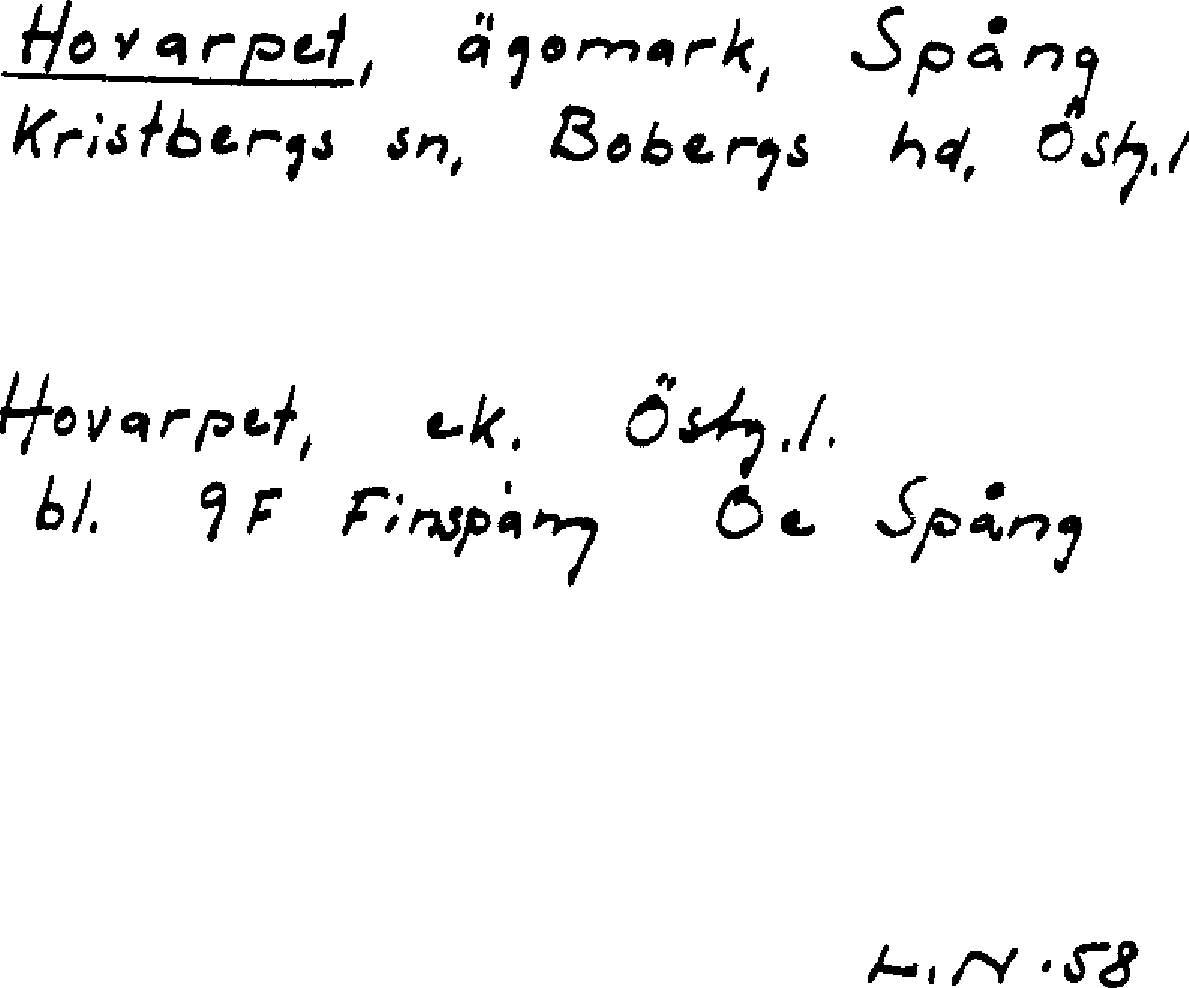 Hovarpet, ägomark, Spång
Kristbergs sn, Bobergs hd, Östg.l
Hovarpet, ek. Östg.l.
bl. 9F Finspång 0e Spång
L.N.58